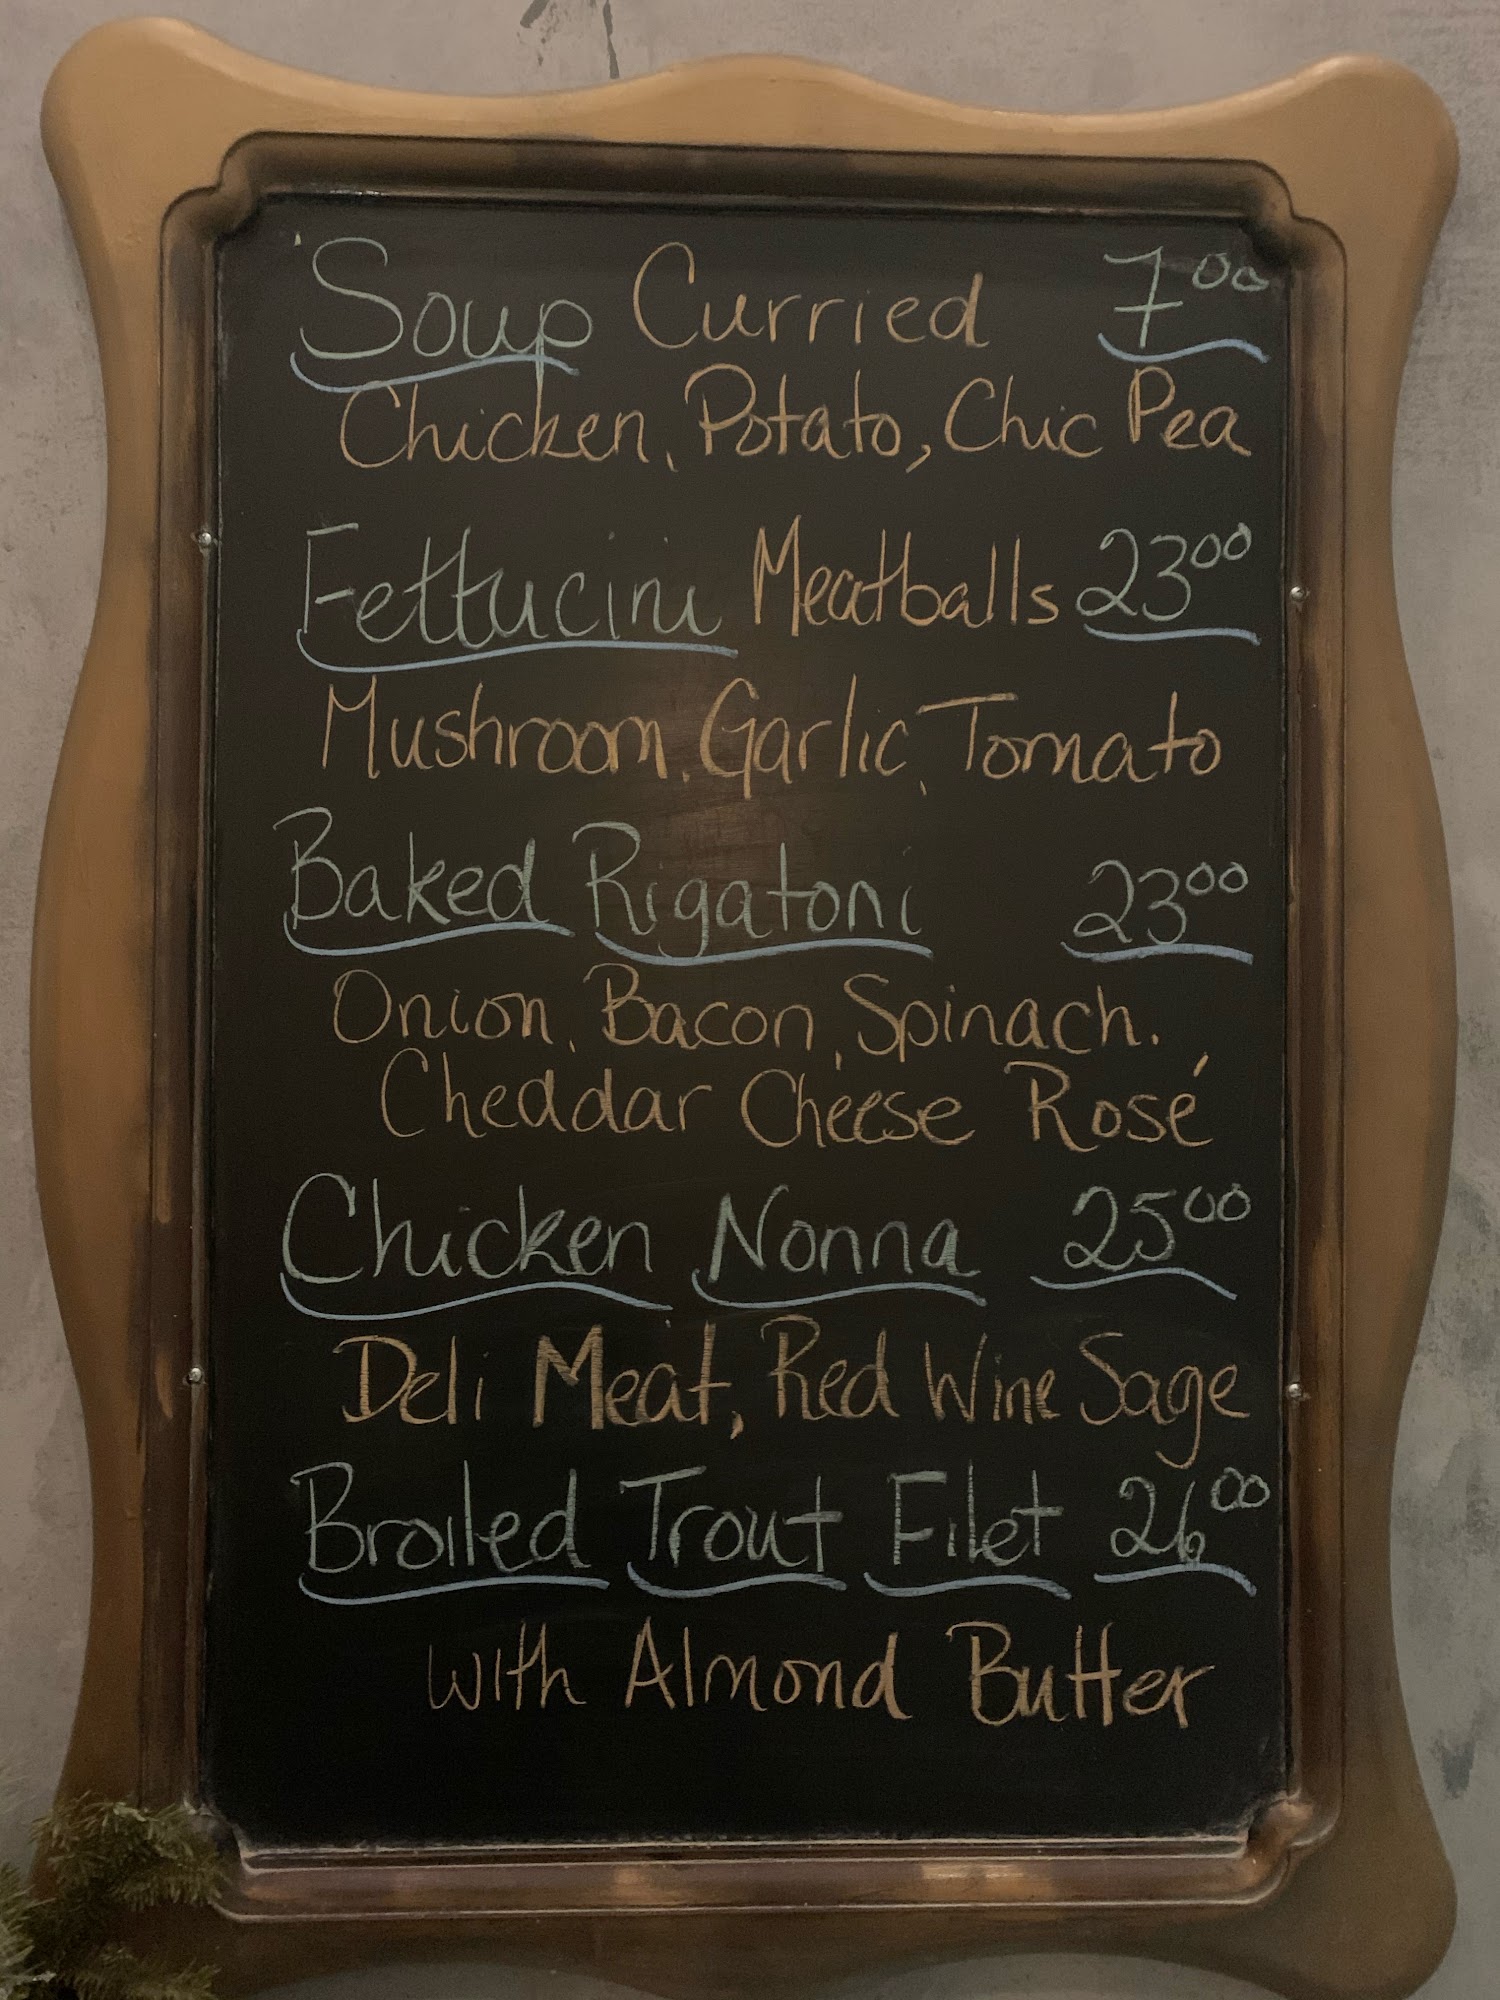 Soup Curried 7.00
Chicken, Potato, Chic Pea
Fettucini Meatballs 23.00
Mushroom, Garlic, Tomato
Baked Rigatoni 23.00
Onion, Bacon, Spinach.
Cheddar Cheese Rosé
Chicken Nonna 25.00
Deli Meat, Red Wine Sage
Broiled Trout Filet 26.00
with Almond Butter